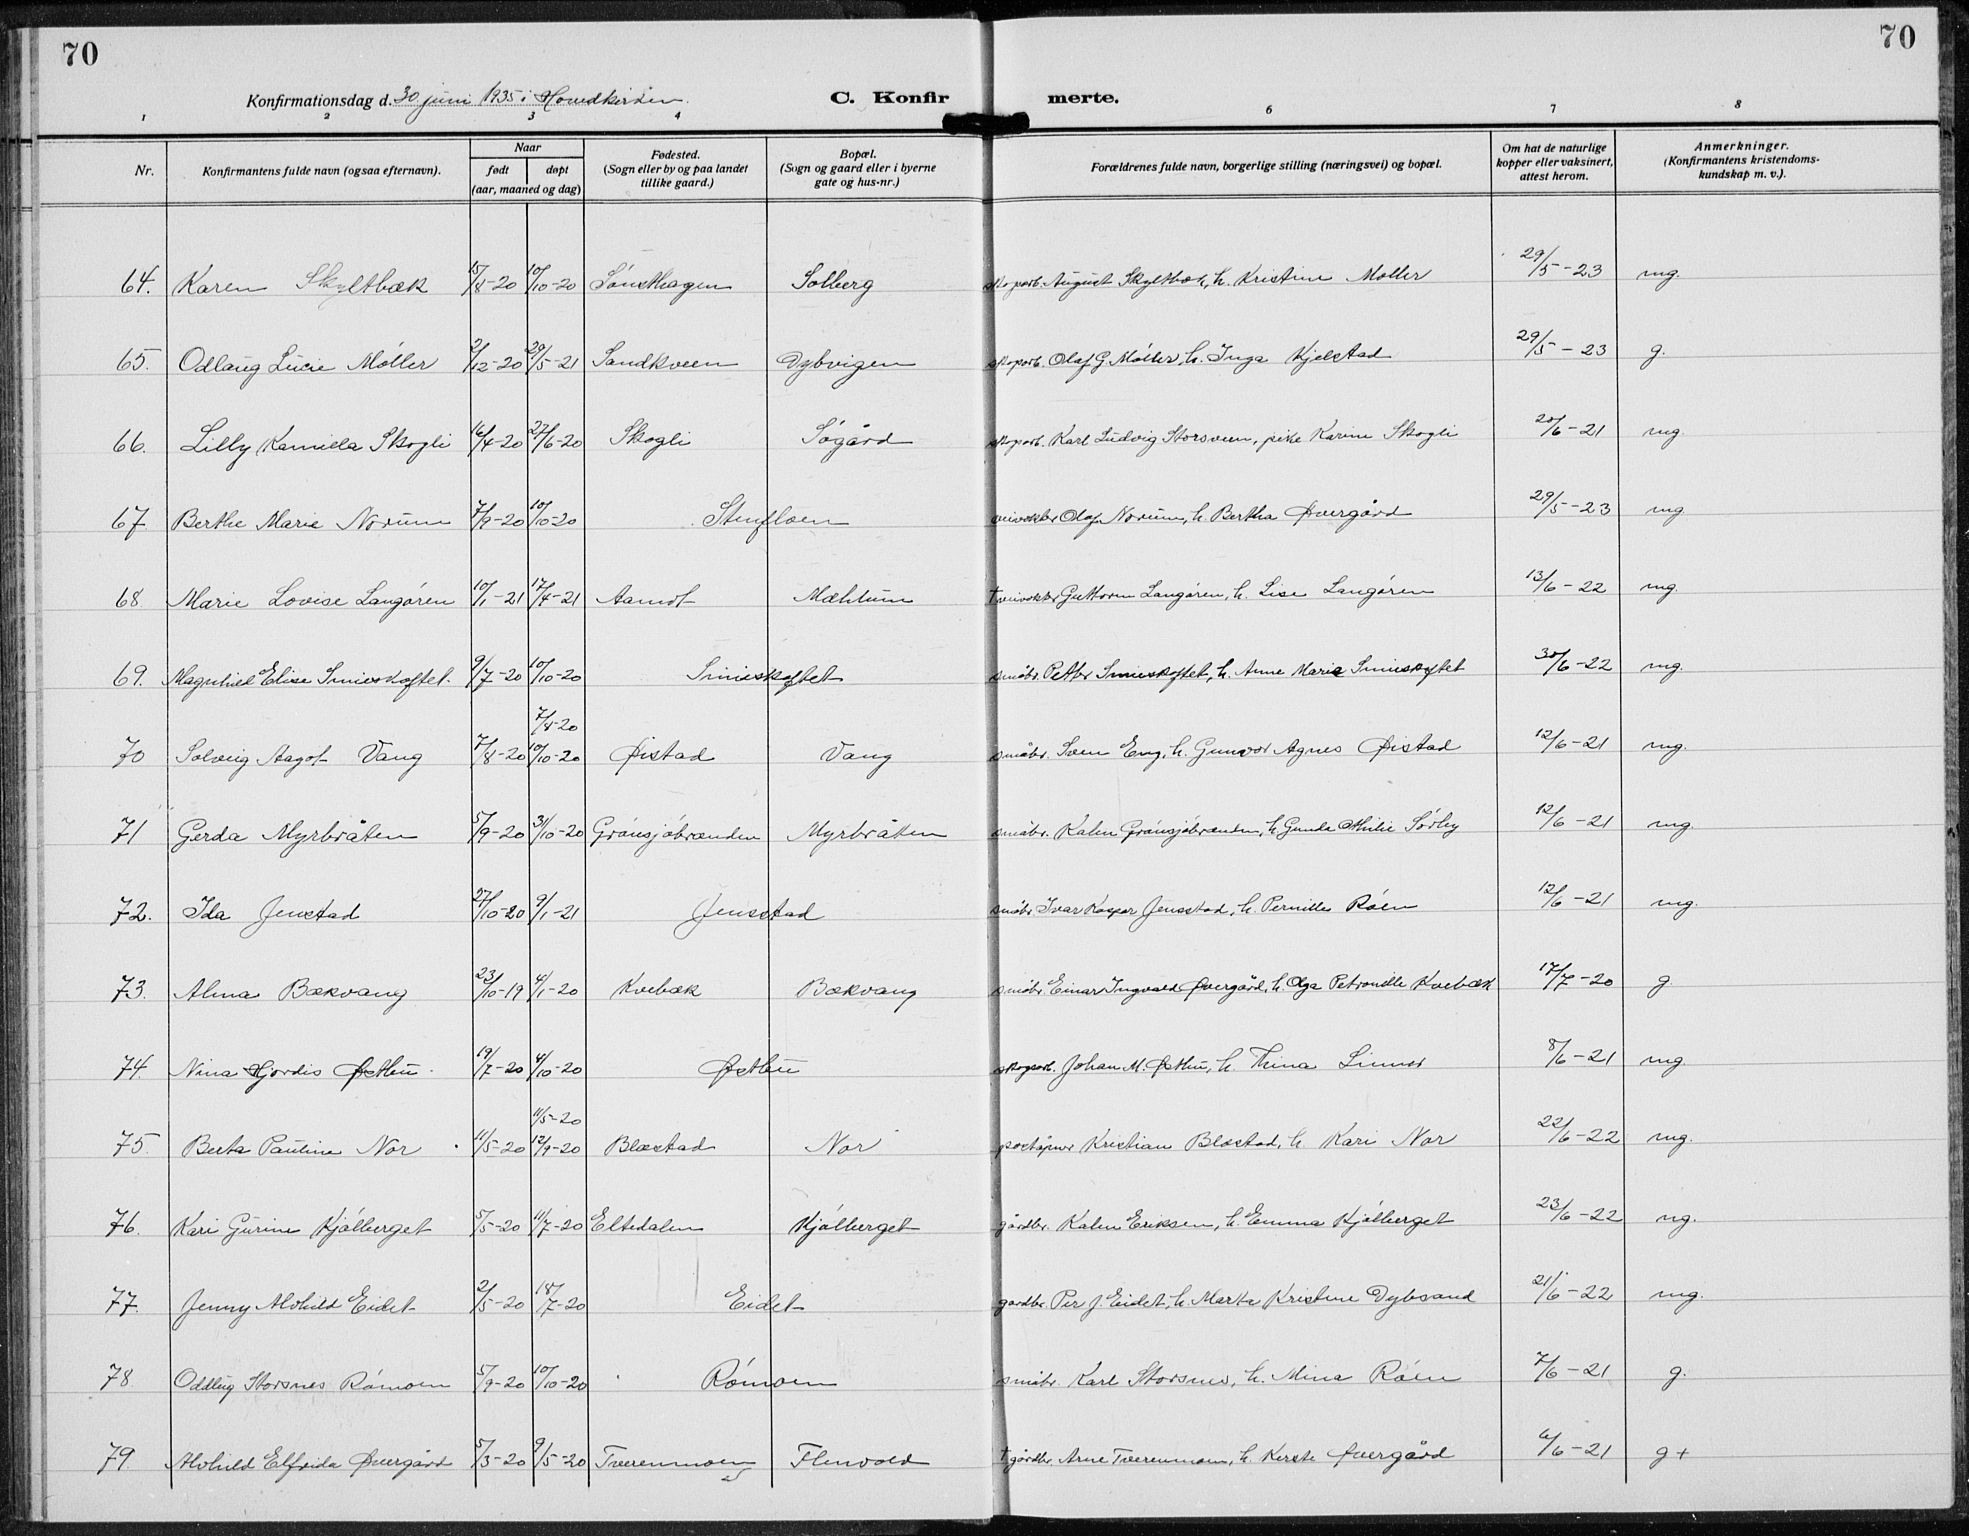 70
70
Konfirmationsdag d. 30 juni 1935 i Hovedkirken.
C. Konfir merte.
1 2 3 4 6 7 8
Nr. Konfirmantens fulde navn (ogsaa efternavn). Naar født døpt (aar, maaned og dag) Fødested. (Sogn eller by og paa landet tillike gaard.) Bopæl. (Sogn og gaard eller i byerne gate og hus-nr.) Forældrenes fulde navn, borgerlige stilling (næringsvei) og bopæl. Om hat de naturlige kopper eller vaksinert, attest herom. Anmerkninger. (Konfirmantens kristendoms-kundskap m. v.).
64. Karen Skyltbæk 15/8-20 10/10-20 Sønsthagen Solberg skogarb. August Skyltbæk, h. Kristine Møller 29/5-23 mg.
65. Odlaug Lucie Møller 2/12-20 29/5-21 Sandkveen Dybvigen skogarb. Olaf G. Møller, h. Inga Kjelstad 29/5-23 g.
66. Lilly Kamilla Skogli 16/4-20 27/6-20 Skogli Søgård skogarb. Karl Ludvig Storsveen, pike Karine Skogli 20/6-21 mg.
67. Berthe Marie Norum 7/9-20 10/10-20 Stenfloen veivokter Olaf Norum, h. Bertha Øvergård 29/5-23 mg
68. Marie Lovise Langøren 10/1-21 17/4-21 Aamot Mæhlum † veivokter Guttorm Langøren, h. Lise Langøren 13/6-22 mg.
69. Magnhild Elise Smieskaftet. 9/7-20 10/10-20 Smieskaftet småbr. Petter Smieskaftet, h. Anne Marie Smieskaftet 30/6-22 mg.
7/8-20
70 Solveig Aagot Vang 7/8-20 10/10-20 Øistad Vang småbr. Sven Eng, h. Gunvor Agnes Øistad 12/6-21 mg.
71 Gerda Myrbråten 5/9-20 3/10-20 Grånsjøbrænden Myrbråten småbr. Kalen Grånsjøbrænden, h. Gunda Othilie Sørby 12/6-21 mg
72. Ida Jenstad 27/10-20 9/1-21 Jensstad småbr. Ivar Kaspar Jensstad, h. Pernille Røen 12/6-21 mg.
73. Alma Bækvang 23/10-19 4/1-20 Kvebæk Bækvang småbr. Einar Ingvald Øvergård, h. Olga Petronille Kvebæk 17/7-20 g
74. Nina Hjørdis Østhu 19/7-20 4/10-20 Østhu skogarb. Johan M. Østhu, h. Thina 8/6-21 mg.
11/5-20
75. Berta Pauline Nor 11/5-20 12/9-20 Blæstad Nor poståpner Kristian Blæstad, h. Kari Nor 22/6-22 mg.
76. Kari Gurine Kjølberget 5/5-20 11/7-20 Eltedalen Kjølberget gårdbr. Kalen Eriksen, h. Emma Kjølberget 23/6-22 ng.
77. Jenny Alvhild Eidet 2/5-20 18/7-20 Eidet gardbr. Per J. Eidet, h. Marta Kristine Dybsand 21/6-22 mg.
78 Oddlug Storsnes Rømoen 5/9-20 10/10-20 Rømoen småbr. Karl Storsnes, h. Mina Røen 7/6-21 g.
79. Alvhild Elfrida Øvergård 5/3-20 9/5-20 Tverenmoen Flenvold † gårdbr. Arne Tverenmoen, h. Kerste Øvergård 6/6-21 g +